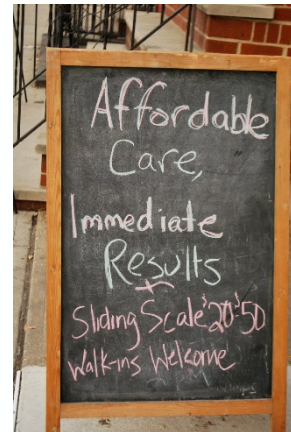 Affordable
Care,
Immediate
Results
+
Sliding Scale $20-$50
Walk-ins Welcome